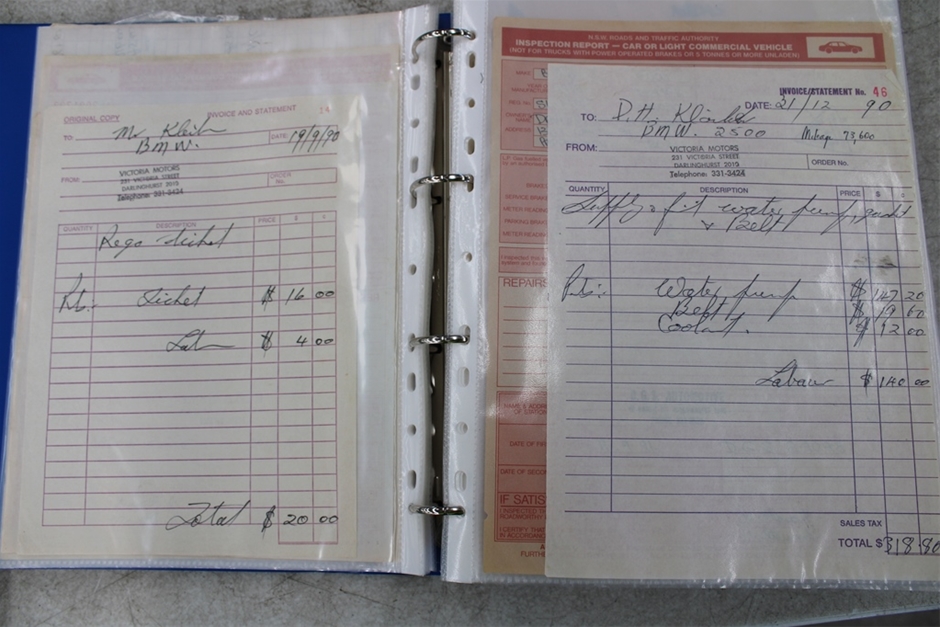 ORIGINAL COPY
INVOICE AND STATEMENT 24
TO: Mr Klein
BMW.
DATE: 19/9/90
VICTORIA MOTORS
231 VICTORIA STREET
DARLINGHURST 2010
Telephone: 331-3424
FROM:
ORDER No.
QUANTITY DESCRIPTION PRICE $ ¢
Rego ticket
Pts: ticket $ 16 00
$ 4 00
Total $ 20 00
N.S.W. ROADS AND TRAFFIC AUTHORITY
INSPECTION REPORT — CAR OR LIGHT COMMERCIAL VEHICLE
(NOT FOR TRUCKS WITH POWER OPERATED BRAKES OR 5 TONNES OR MORE UNLADEN)
MAKE
REG. No.
ADDRESS
SERVICE BRAKE
METER READING
REPAIRS
NAME & ADDRESS
DATE OF
DATE OF SECOND
IF SATIS
I CERTIFY THAT
IN ACCORDANCE
FURTHER
INVOICE/STATEMENT No. 46
DATE: 21/12 90
TO: P.H.
BMW. 2500 73,600
FROM: VICTORIA MOTORS
231 VICTORIA STREET
DARLINGHURST 2010
Telephone: 331-3424
ORDER No.
QUANTITY DESCRIPTION PRICE $ ¢
Supply & fit water pump, gasket
& Belt
Pts: Water pump $ 147 20
Belt $ 19 60
Coolant. $ 12 00
Labour $ 140 00
SALES TAX
TOTAL $318.80